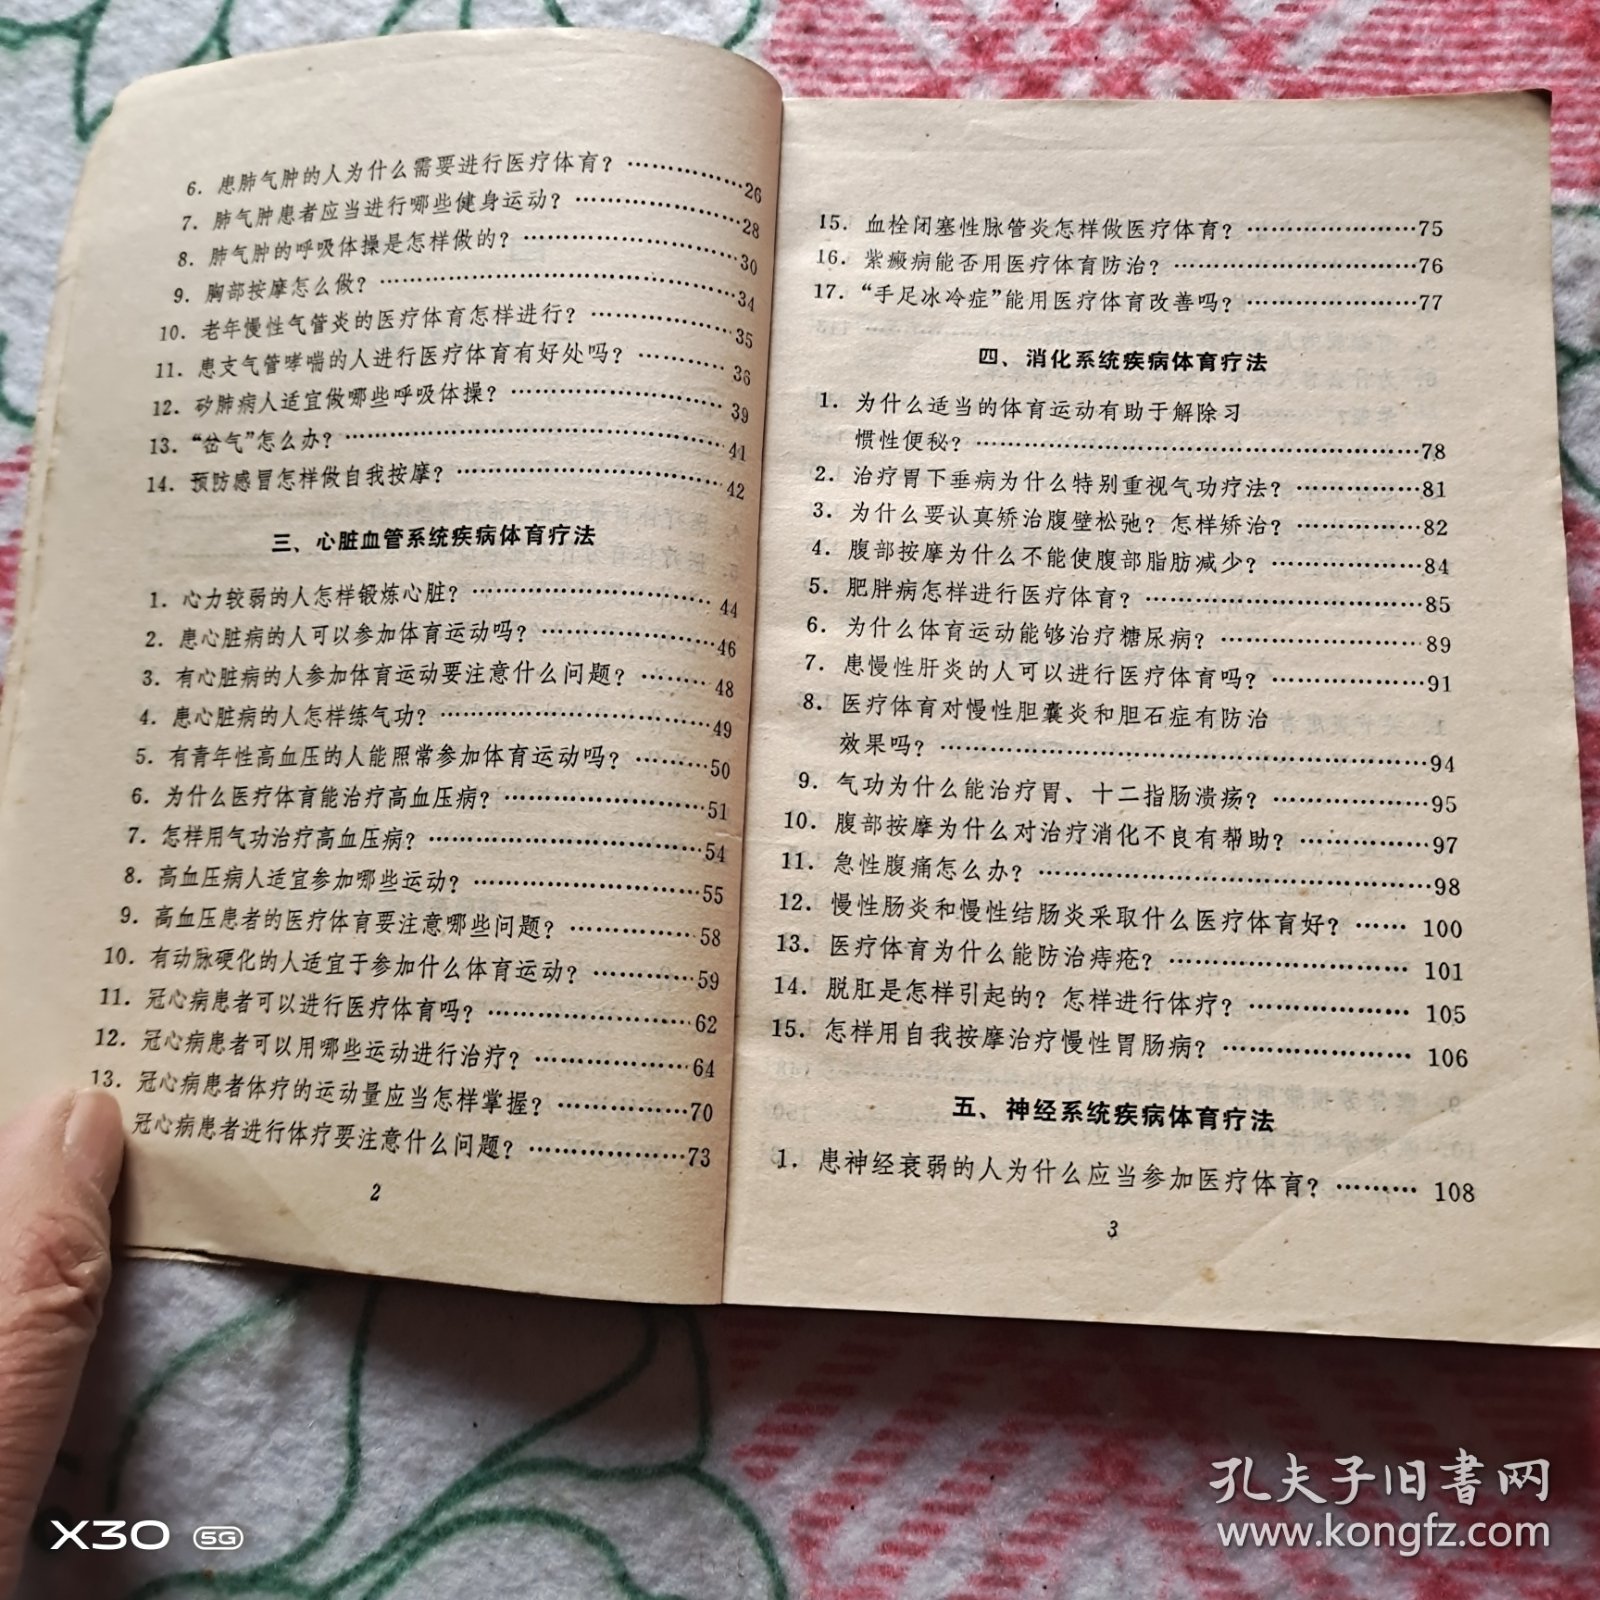 6. 患肺气肿的人为什么需要进行医疗体育？…………26
7. 肺气肿患者应当进行哪些健身运动？…………28
8. 肺气肿的呼吸体操是怎样做的？…………30
9. 胸部按摩怎么做？…………34
10. 老年慢性气管炎的医疗体育怎样进行？…………35
11. 患支气管哮喘的人进行医疗体育有好处吗？…………36
12. 矽肺病人适宜做哪些呼吸体操？…………39
13. “岔气”怎么办？…………41
14. 预防感冒怎样做自我按摩？…………42
三、心脏血管系统疾病体育疗法
1. 心力较弱的人怎样锻炼心脏？…………44
2. 患心脏病的人可以参加体育运动吗？…………46
3. 有心脏病的人参加体育运动要注意什么问题？………48
4. 患心脏病的人怎样练气功？…………49
5. 有青年性高血压的人能照常参加体育运动吗？………50
6. 为什么医疗体育能治疗高血压病？…………51
7. 怎样用气功治疗高血压病？…………54
8. 高血压病人适宜参加哪些运动？…………55
9. 高血压患者的医疗体育要注意哪些问题？…………58
10. 有动脉硬化的人适宜于参加什么体育运动？…………59
11. 冠心病患者可以进行医疗体育吗？…………62
12. 冠心病患者可以用哪些运动进行治疗？…………64
13. 冠心病患者体疗的运动量应当怎样掌握？…………70
冠心病患者进行体疗要注意什么问题？…………73
2
15. 血栓闭塞性脉管炎怎样做医疗体育？…………75
16. 紫癜病能否用医疗体育防治？…………76
17. “手足冰冷症”能用医疗体育改善吗？…………77
四、消化系统疾病体育疗法
1. 为什么适当的体育运动有助于解除习
惯性便秘？…………78
2. 治疗胃下垂病为什么特别重视气功疗法？…………81
3. 为什么要认真矫治腹壁松弛？怎样矫治？…………82
4. 腹部按摩为什么不能使腹部脂肪减少？…………84
5. 肥胖病怎样进行医疗体育？…………85
6. 为什么体育运动能够治疗糖尿病？…………89
7. 患慢性肝炎的人可以进行医疗体育吗？…………91
8. 医疗体育对慢性胆囊炎和胆石症有防治
效果吗？…………94
9. 气功为什么能治疗胃、十二指肠溃疡？…………95
10. 腹部按摩为什么对治疗消化不良有帮助？…………97
11. 急性腹痛怎么办？…………98
12. 慢性肠炎和慢性结肠炎采取什么医疗体育好？……100
13. 医疗体育为什么能防治痔疮？…………101
14. 脱肛是怎样引起的？怎样进行体疗？…………105
15. 怎样用自我按摩治疗慢性胃肠病？…………106
五、神经系统疾病体育疗法
1. 患神经衰弱的人为什么应当参加医疗体育？………108
3
X30 5G
孔夫子旧书网
www.kongfz.com